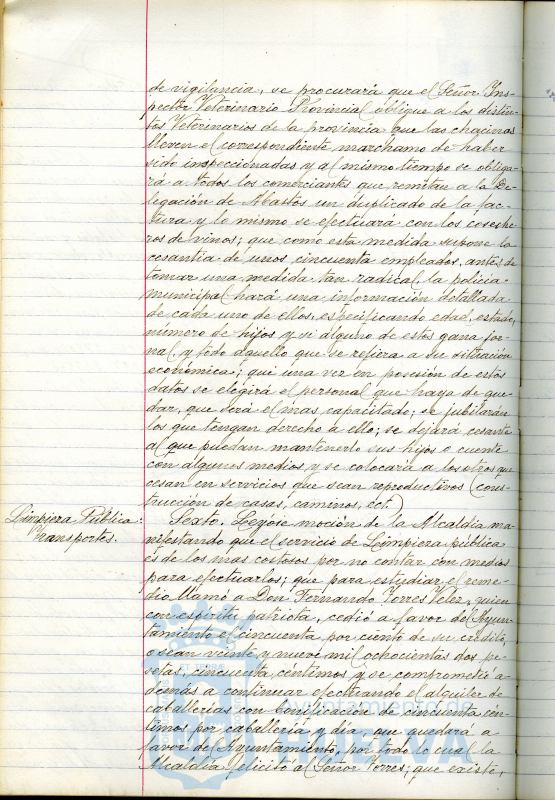 de vigilancia, se procurará que el Señor Ins-
pector Veterinario Provincial oblique a los distin-
tos Veterinarios de la provincia que las chacinas
lleven el correspondiente marchamo de haber
sido inspeccionadas y al mismo tiempo se obliga-
rá a todos los comerciantes que remitan a la De-
legación de Abastos un duplicado de la fac-
tura y lo mismo se efectuará con los coseche-
ros de vinos; que como esta medida supone la
cesantia de unos cincuenta empleados, antes de
tomar una medida tan radical, la policia
municipal hará una información detallada
de cada uno de ellos, especificando edad, estado,
número de hijos y si alguno de estos gana jor-
nal, y todo aquello que se refiera a su situación
económica; que una vez en posesión de estos
datos se elegirá el personal que haya de que-
dar, que será el mas capacitado; se jubilarán
los que tengan derecho a ello; se dejará cesante
al que puedan mantenerlo sus hijos o cuente
con algunos medios y se colocará a los otros que
cesan en servicios que sean reproductivos (cons-
trucción de casas, caminos, ect.)
Limpieza Pública:
Transportes.
Sexto. Leyose moción de la Alcaldia ma-
nifestando que el servicio de Limpieza pública
es de los mas costosos por no contar con medios
para efectuarlos; que para estudiar el reme-
dio llamó a Don Fernando Torres Velez, quien
con espiritu patriota, cedió a favor del Ayun-
tamiento el cincuenta por ciento de su crédito,
o sean veinte y nueve mil ochocientas dos pe-
setas, cincuenta céntimos y se comprometió a-
demás a continuar efectuando el alquiler de
caballerias con bonificación de cincuenta cén-
timos por caballeria y dia, que quedará a
favor del Ayuntamiento, por todo lo cual la
Alcaldia felicitó al Señor Torres; que existe,
Ayuntamiento de
HUELVA